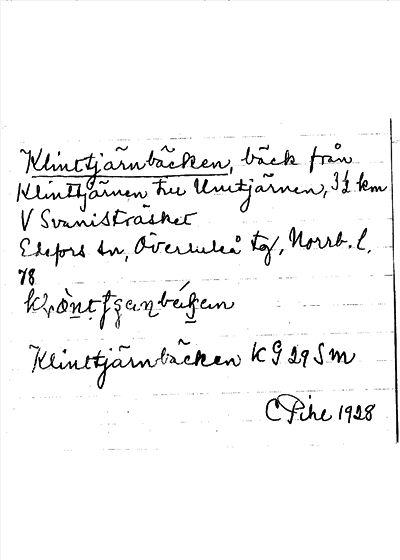 Klinttjärnbäcken, bäck från
Klinttjärnen till Umtjärnen, 3½ km
V Svanisträsket
Edefors sn, Överluleå tg, Norrb. l.
78
Klinttjärnbäcken K G 29 S m
C Pihl 1928